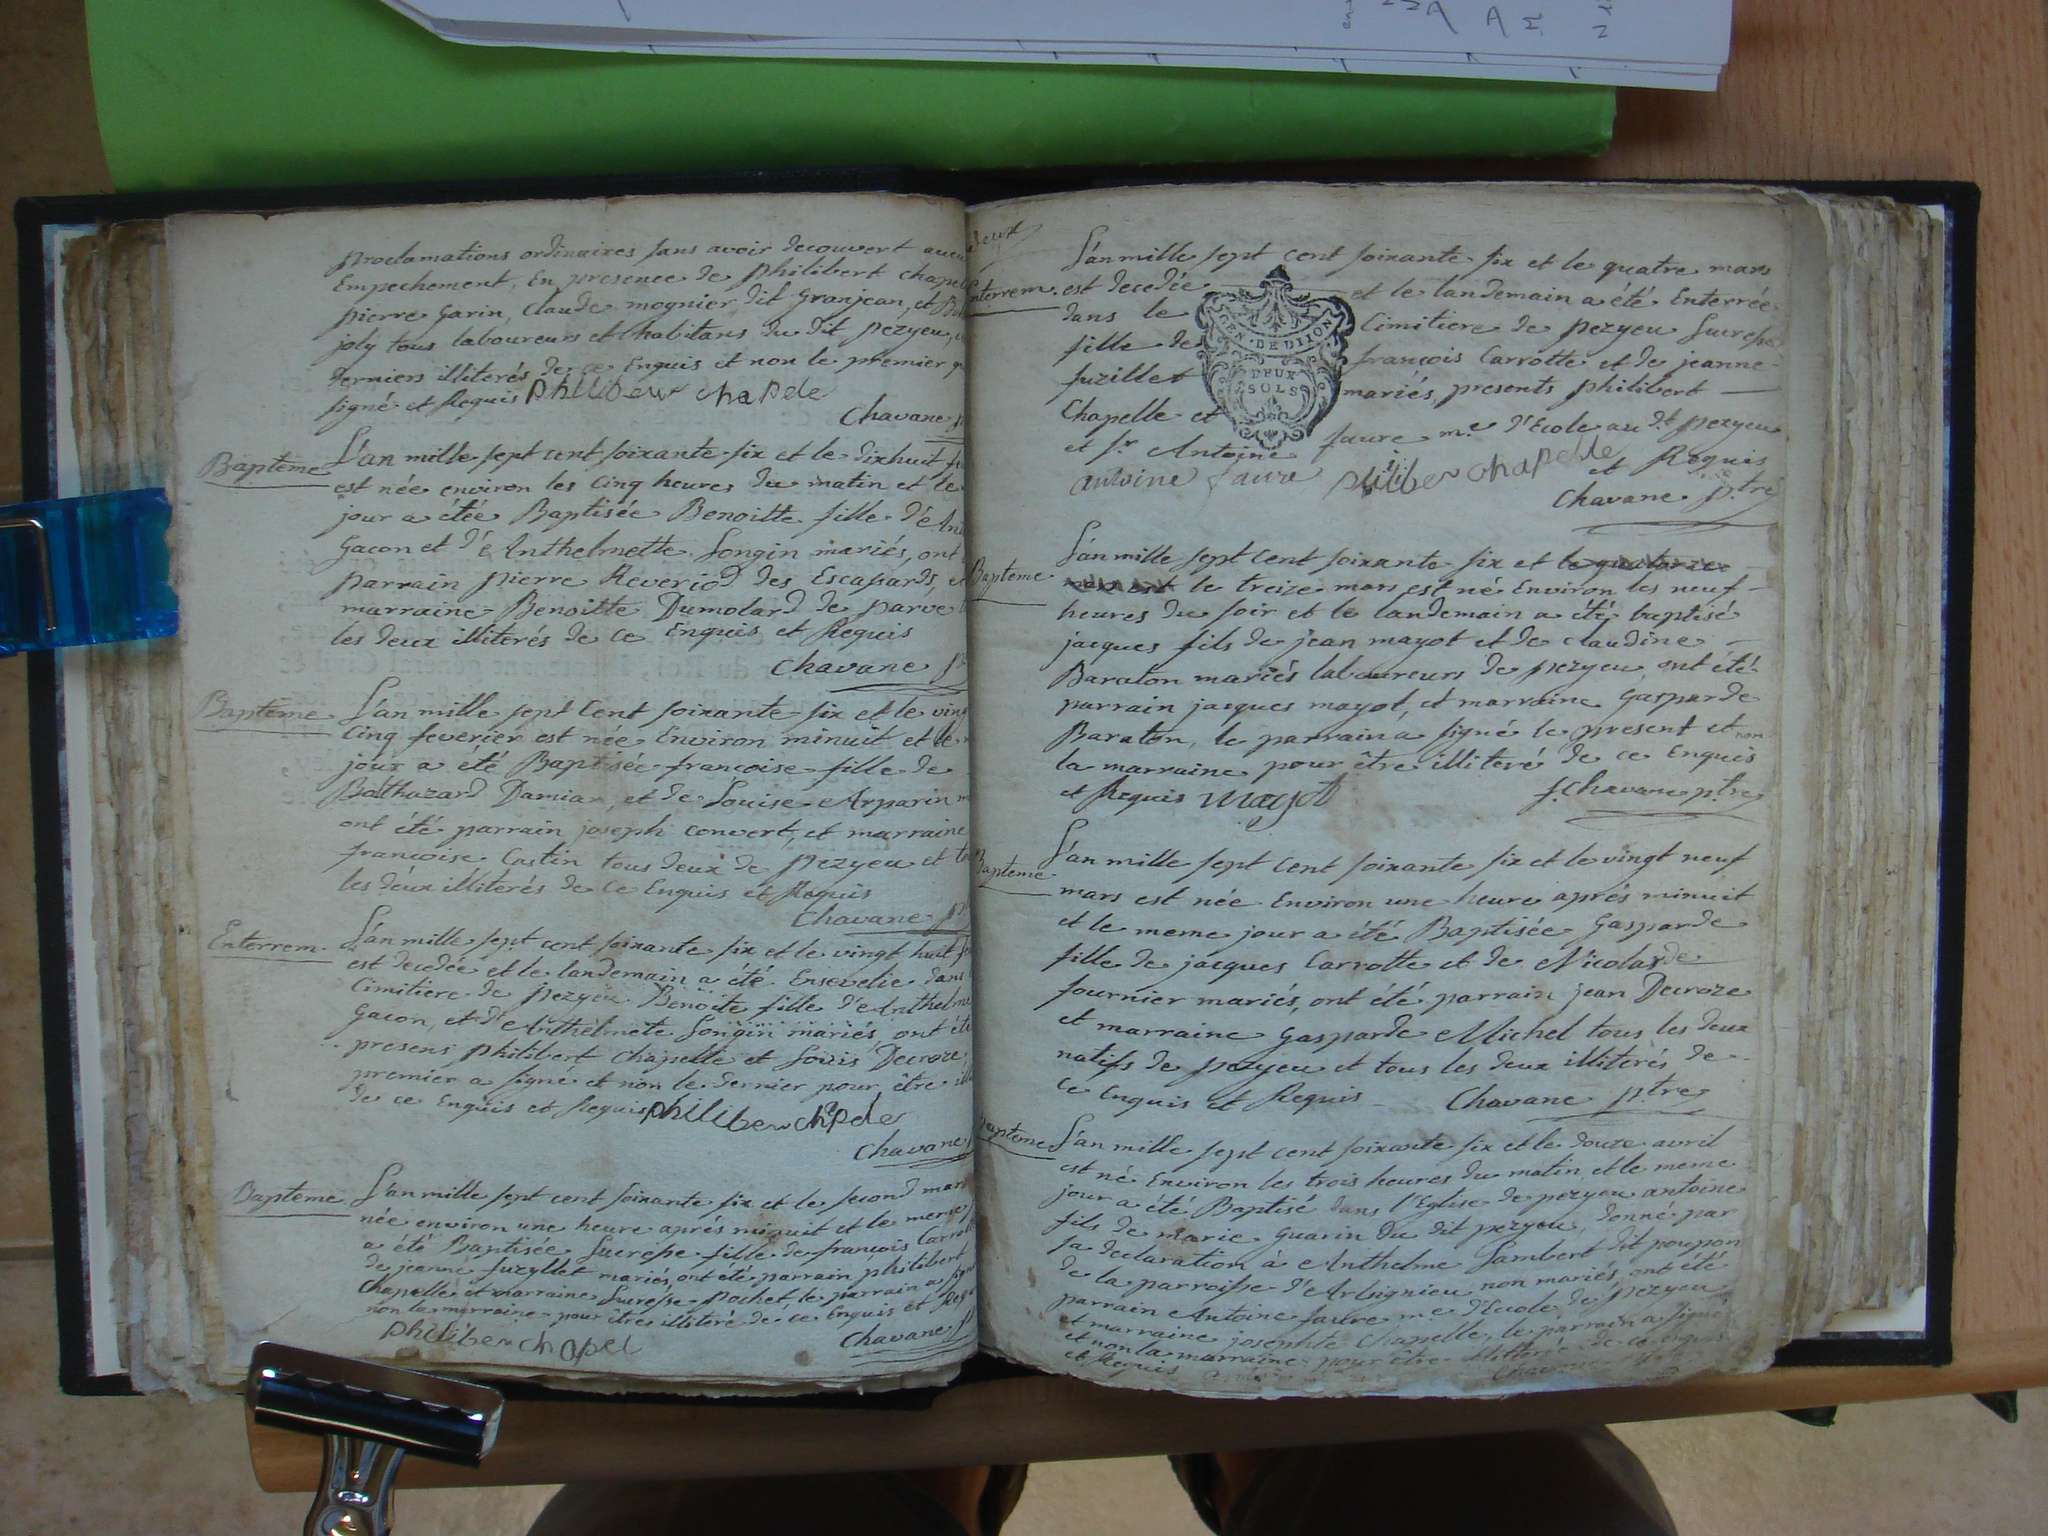 proclamations ordinaires sans avoir decouvert aucun
Empechement, En presence de philibert chapelle
pierre Garin, claude mognier dit Granjean, et
joly tous laboureurs et habitans du dit pezyeu,
derniers illiterés de ce Enquis et non le premier qui
signé et Requis philiber chapele
Chavane
Baptême L'an mille sept cent soixante six et le dixhuit
est née environ les cinq heures du matin et le
jour a étée Baptisée Benoitte fille d'
Gacon et d'Anthelmette Songin mariés, ont
parrain pierre Reveriod des Escapards, et
marraine Benoitte Dumolard de parve
les deux illiterés de ce Enquis et Requis
Chavane
Baptême L'an mille sept Cent soixante six et le vingt
Cinq feverier est née Environ minuit et le
jour a été Baptisée francoise fille de
Balthazard Damian, et de Louise Arparin
ont été parrain joseph convert, et marraine
francoise Castin tous deux de pezyeu et
les deux illiterés de ce Enquis et Requis
Chavane
Enterrem. L'an mille sept cent soixante six et le vingt huit
est decedée et le landemain a été Ensevelie dans
Cimitiere de pezyeu Benoite fille d'Anthelme
Gacon, et d'Anthelmete Songin mariés, ont été
presens philibert chapelle et Louis Decroze
premier a signé et non le dernier pour être
de ce Enquis et Requis philiber chapele
Chavane
Baptême L'an mille sept cent soixante six et le second mars
née environ une heure aprés minuit et le meme
a été Baptisée Lucresse fille de francois Carrotte
de jeanne fuzyllet mariés, ont été parrain philibert
Chapelle et marraine Lucresse pochet, le parrain a signé
non la marraine pour être illiteré de ce Enquis et Requis
philiber chapel
Chavane
deux
L'an mille sept cent soixante six et le quatre mars
Enterrem. est decedée et le landemain a été Enterrée
dans le Cimitiere de pezyeu Lucresse
fille de françois Carrotte et de jeanne
fuzillet mariés, presents philibert
Chapelle et
et Sr Antoine faure me d'Ecole au dt pezyeu
et Requis
GEN. DE DIJON
DEUX
SOLS
antoine faure philiber chapelle
Chavane ptre
Bapteme L'an mille sept cent soixante six et le quatorze
le treize mars est né Environ les neuf
heures du soir et le landemain a été baptisé
jacques fils de jean mayot et de claudine
Baraton mariés laboureurs de pezyeu, ont été
parrain jacques mayot, et marraine Gasparde
Baraton, le parrain a signé le present et non
la marraine pour être illiteré de ce Enquis
et Requis mayot f. Chavane ptre
Bapteme L'an mille sept cent soixante six et le vingt neuf
mars est née Environ une heure aprés minuit
et le meme jour a été Baptisée Gasparde
fille de jacques Carrotte et de Nicolarde
fournier mariés, ont été parrain jean Decroze
et marraine Gasparde Michel tous les deux
natifs de pezyeu et tous les deux illiterés de
ce Enquis et Requis Chavane ptre
Bapteme L'an mille sept cent soixante six et le douze avril
est né Environ les trois heures du matin et le meme
jour a été Baptisé dans l'Eglise de pezyeu antoine
fils de marie Guarin du dit pezyeu, donné par
sa declaration à Anthelme Lambert dit poupon
de la parroisse d'Arbignieu non mariés, ont été
parrain Antoine faure me d'Ecole de pezyeu
et marraine josephte Chapelle, le parrain a signé
et non la marraine pour être illiteré de ce enquis
et Requis